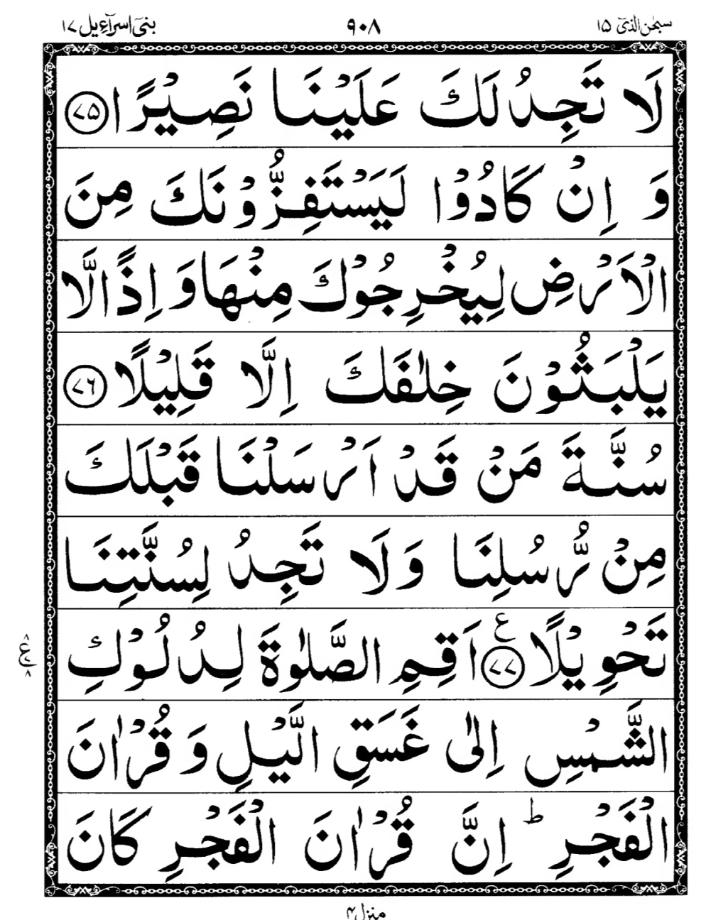 سبحٰن الذیٓ ۱۵ ۹۰۸ بنیٓ اسرآءیل ۱۷
لَا تَجِدُ لَكَ عَلَيْنَا نَصِيْرًا ۷۵
وَ اِنْ كَادُوْا لَيَسْتَفِزُّوْنَكَ مِنَ
الْاَرْضِ لِيُخْرِجُوْكَ مِنْهَا وَ اِذًا لَّا
يَلْبَثُوْنَ خِلٰفَكَ اِلَّا قَلِيْلًا ۷۶
سُنَّةَ مَنْ قَدْ اَرْسَلْنَا قَبْلَكَ
مِنْ رُّسُلِنَا وَلَا تَجِدُ لِسُنَّتِنَا
تَحْوِيْلًا ۷۷ ع اَقِمِ الصَّلٰوةَ لِدُلُوْكِ
الشَّمْسِ اِلٰى غَسَقِ الَّيْلِ وَ قُرْاٰنَ
الْفَجْرِ ؕ اِنَّ قُرْاٰنَ الْفَجْرِ كَانَ
منزل ۴